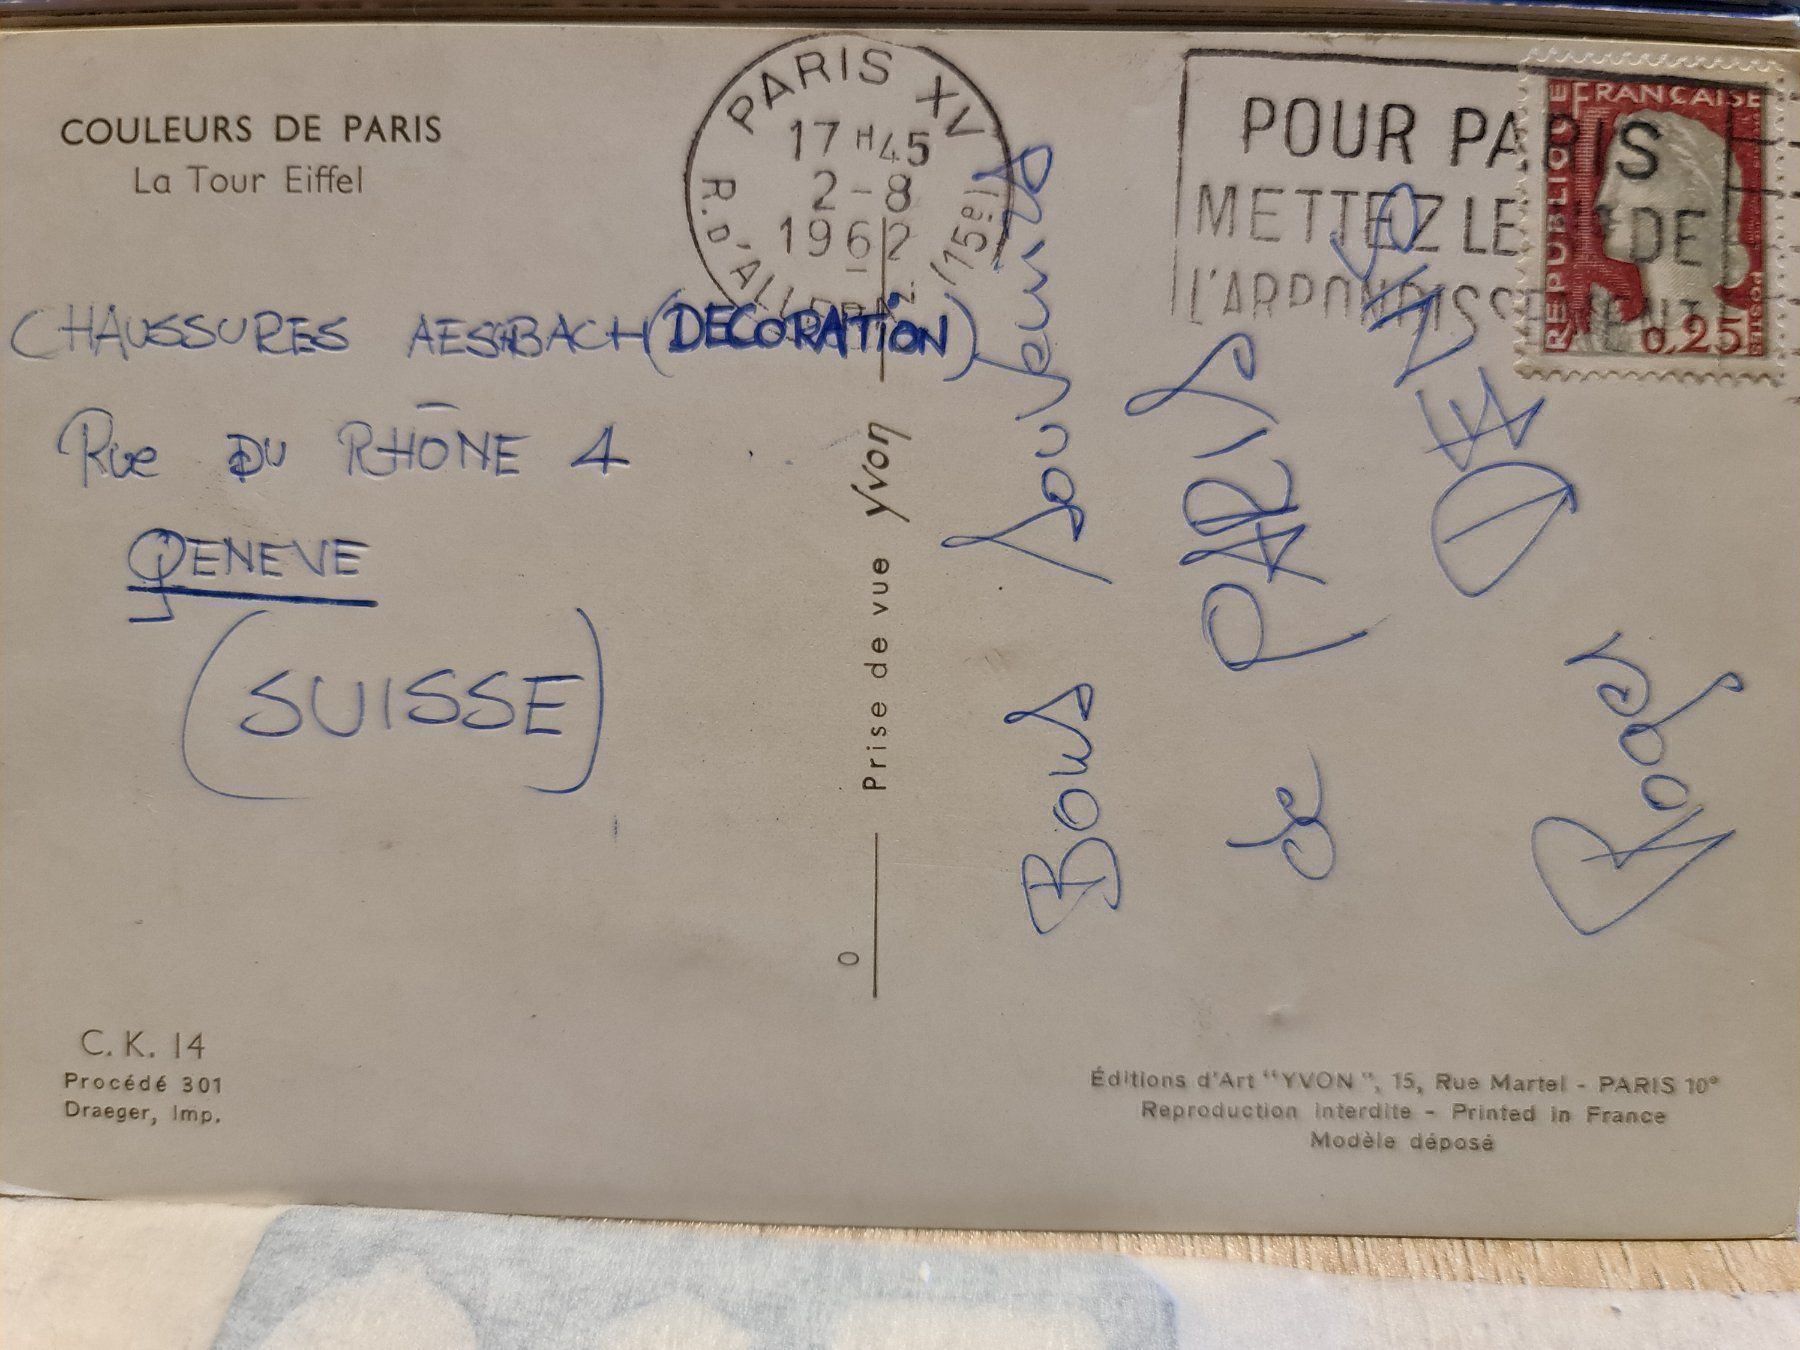 COULEURS DE PARIS
La Tour Eiffel
PARIS XV
17 H 45
2-8
1962
R. D'ALLERAY (15e)
POUR PARIS
METTEZ LE N° DE
L'ARRONDISSEMENT
REPUBLIQUE
FRANÇAISE
0,25
POSTES
CHAUSSURES AESHBACH (DECORATION)
RUE DU RHÔNE 4
GENEVE
(SUISSE)
Bons souvenirs
de PARIS
Roger
Prise de vue Yvon
C. K. 14
Procédé 301
Draeger, Imp.
Éditions d'Art "YVON", 15, Rue Martel - PARIS 10e
Reproduction interdite - Printed in France
Modèle déposé